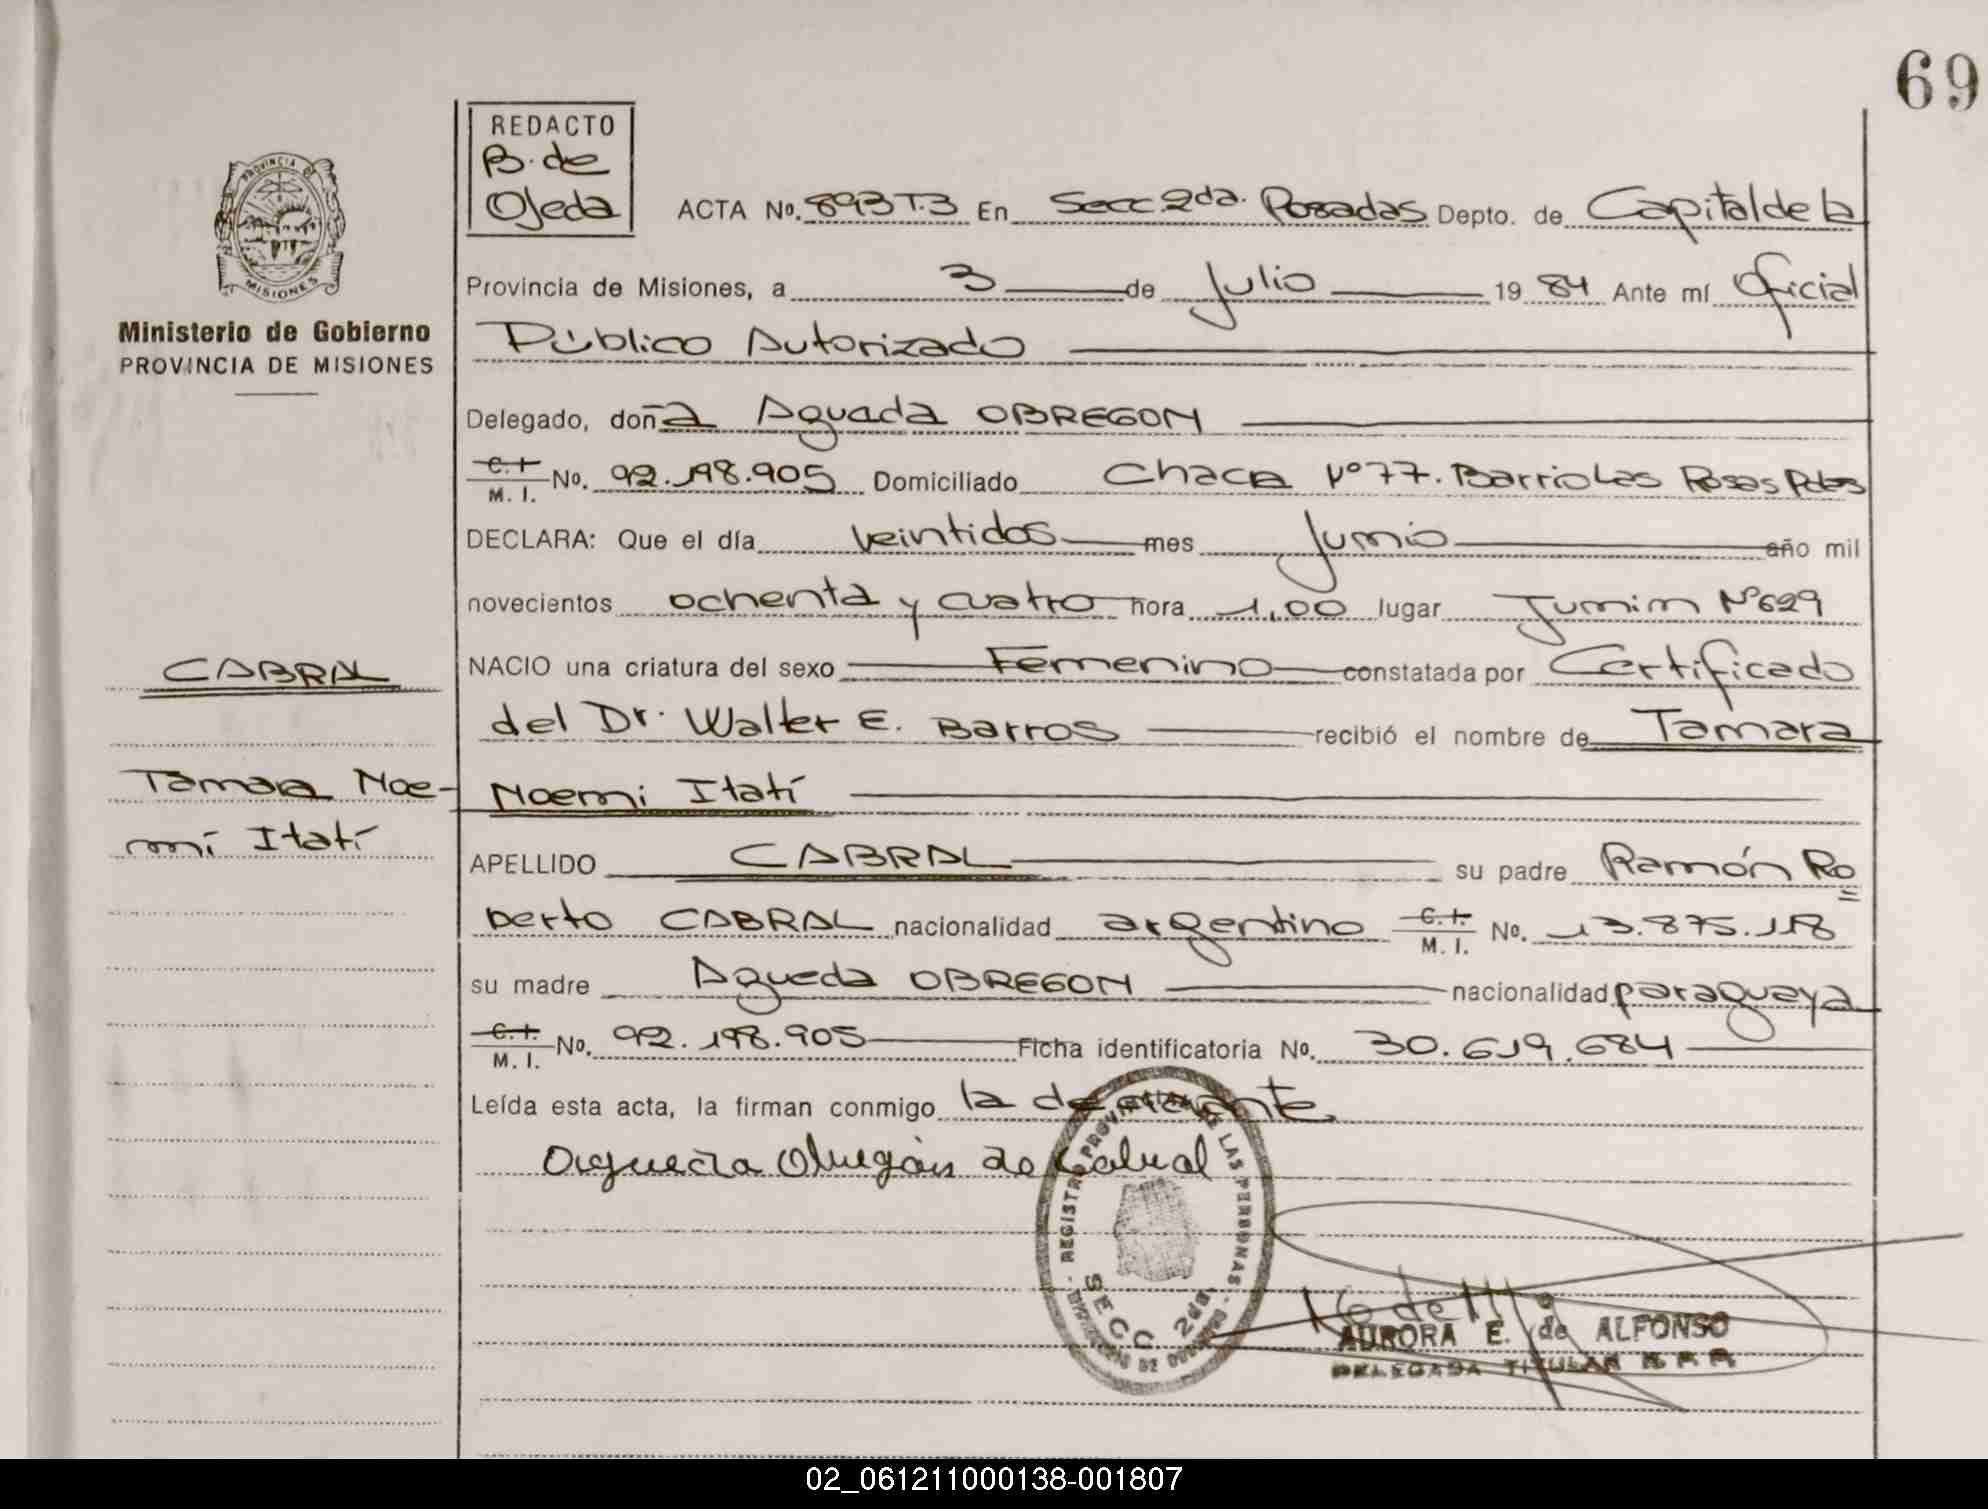 69
REDACTO
B. de
Ojeda
ACTA No. 893 T.3 En Secc 2da. Posadas Depto. de Capital de la
PROVINCIA DE
MISIONES
Provincia de Misiones, a 3 de Julio 19 84 Ante mí Oficial
Ministerio de Gobierno
PROVINCIA DE MISIONES
Público Autorizado
Delegado, doña Agueda OBREGON
C.I. M. I. No. 92.198.905 Domiciliado Chacra Nº 77. Barrio Las Rosas Pdas
DECLARA: Que el día veintidos mes Junio año mil
novecientos ochenta y cuatro hora 1,00 lugar Junin Nº 629
CABRAL
NACIO una criatura del sexo Femenino constatada por Certificado
del Dr. Walter E. Barros recibió el nombre de Tamara
Tamara Noe-
Noemi Itatí
mí Itatí
APELLIDO CABRAL su padre Ramón Ro=
berto CABRAL nacionalidad argentino C.I. M. I. No. 13.875.118
su madre Agueda OBREGON nacionalidad paraguaya
C.I. M. I. No. 92.198.905 Ficha identificatoria No. 30.619.684
Leída esta acta, la firman conmigo la declarante
Agueda Obregón de Cabral
REGISTRO PROVINCIAL DE LAS PERSONAS
SECC. 2da.
AURORA E. de ALFONSO
DELEGADA TITULAR
02_061211000138-001807